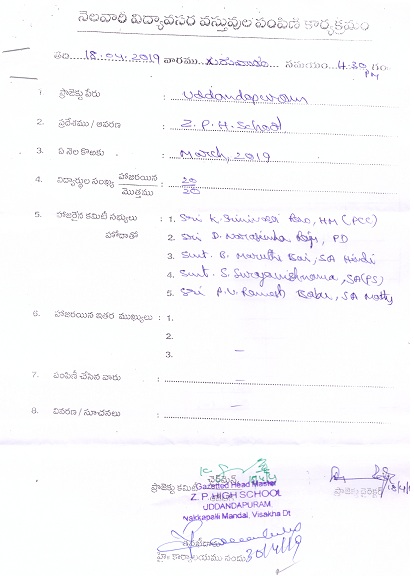 నెలవారీ విద్యావసర వస్తువుల పంపిణీ కార్యక్రమం
తేది 18.04.2019 వారము గురువారం సమయం 4.30 గం. PM
1. ప్రాజెక్టు పేరు : Uddandapuram
2. ప్రదేశము / ఆవరణ : Z.P.H. School
3. ఏ నెల కొఱకు : March, 2019
4. విద్యార్థుల సంఖ్య హాజరయిన / మొత్తము : 20 / 20
5. హాజరైన కమిటీ సభ్యులు : 1. Sri K. Srinivasa Rao, HM (PCC)
హోదాతో 2. Sri D. Narasimha Raju, PD
3. Smt. B. Maruthi Bai, SA Hindi
4. Smt. S. Suryamishnama, SA(PS)
5. Sri P.V. Ramesh Babu, SA Maths
6. హాజరయిన ఇతర ముఖ్యులు : 1.
2.
3. —
7. పంపిణీ చేసిన వారు : —
8. వివరణ / సూచనలు : —
ప్రాజెక్టు కమిటీ ఛైర్మన్
ప్రాజెక్టు డైరెక్టర్
Gazetted Head Master
Z. P. HIGH SCHOOL
UDDANDAPURAM,
Nakkapalli Mandal, Visakha Dt
హై కార్యాలయము నందు 30/4/19